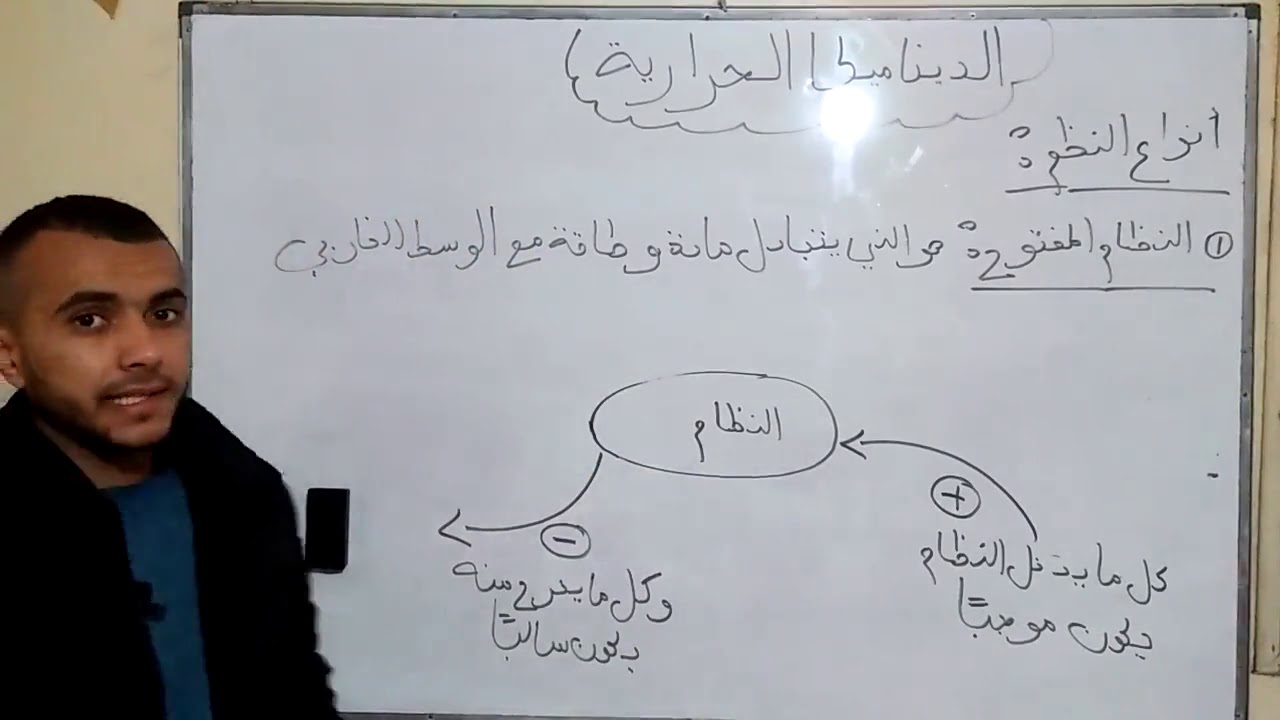 الديناميكا الحرارية
أنواع النظم:
① النظام المفتوح: هو الذي يتبادل مادة و طاقة مع الوسط الخارجي
النظام
+
كل ما يدخل النظام
يكون موجبًا
−
وكل ما يخرج منه
يكون سالبًا